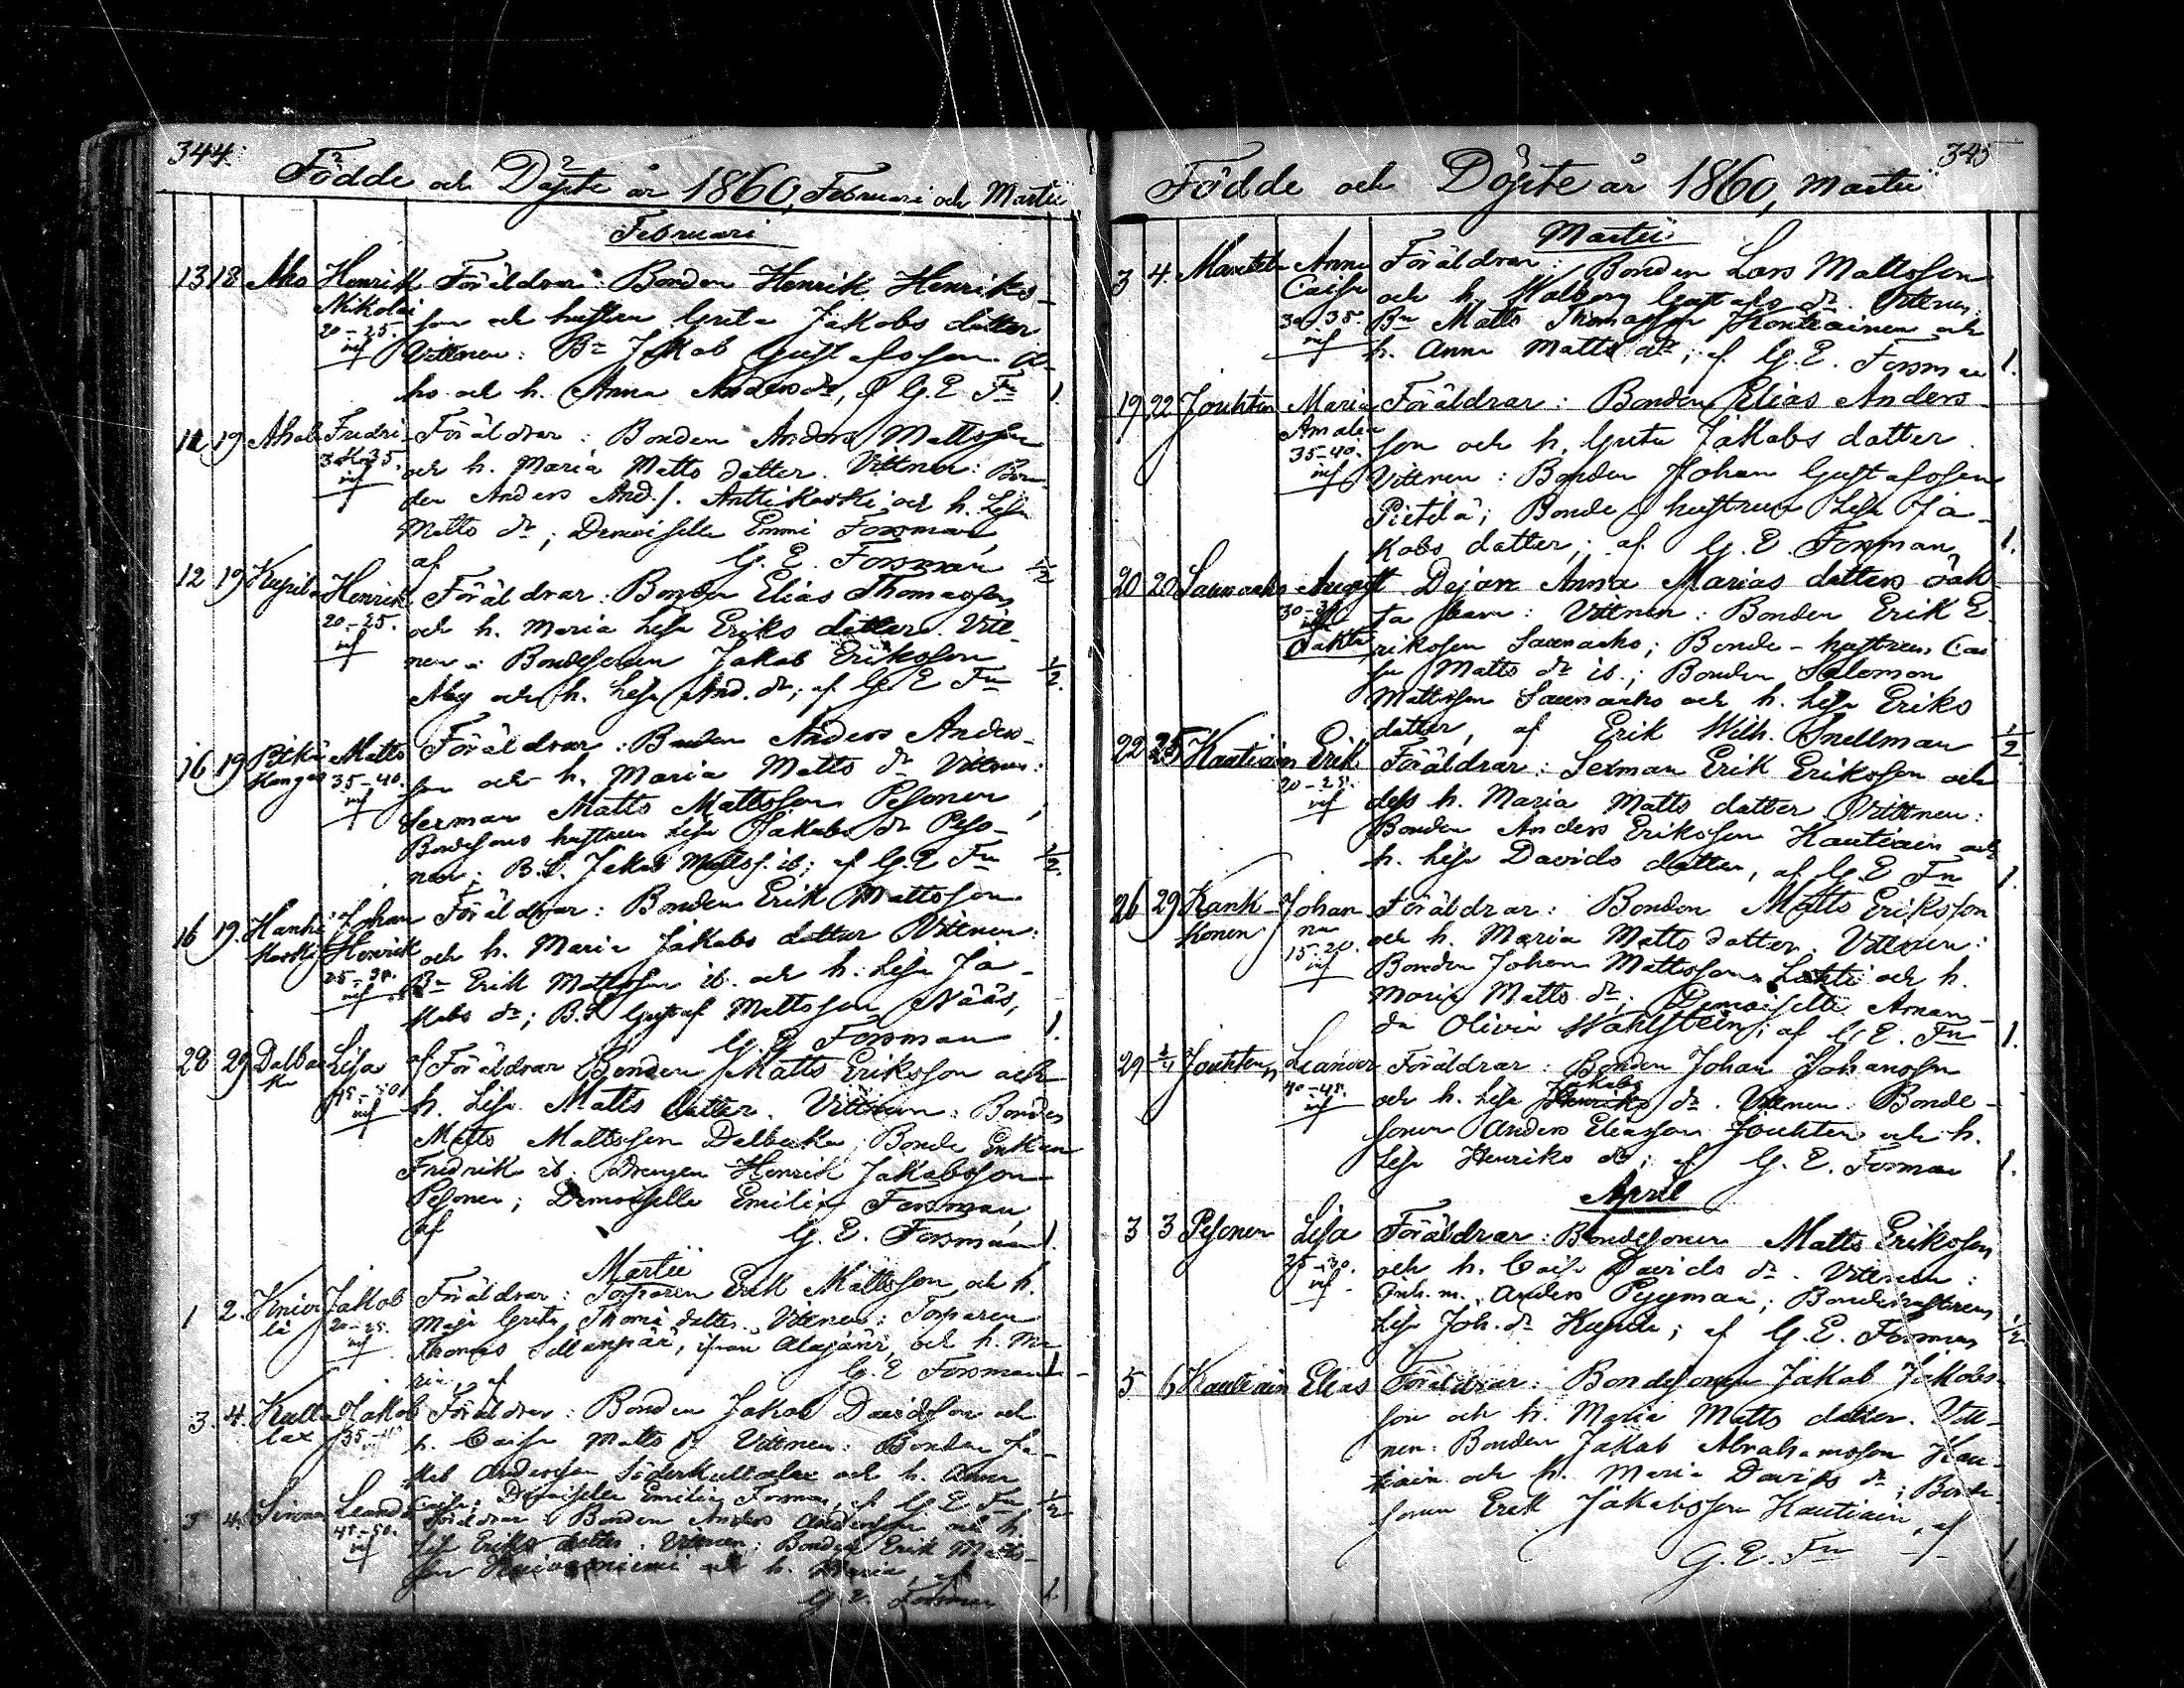 344.
Födde och Döpte år 1860, Februari och Martii
Februari
13 18 Aho Henrik Föräldrar: Bonden Henrik Henriks-
Nikolai son och hustrun Greta Jakobs dotter
20-25. Vittnen: Bn Jakob Gustafsson A-
inf ho och h. Anna Anders dr, af G. E. Fn 1.
19 Fredri Föräldrar: Bonden Anders Mattsson
inf och h. Maria Matts dotter. Vittnen: Bon-
den Anders And.s. Anttikoski och h. Lisa
Matts dr; Demoiselle Emmi Forsman,
af G. E. Forsman 1/2
12 19 Kupila Henrik Föräldrar: Bonden Elias Thomasson
20-25. och h. Maria Lisa Eriks dotter. Vitt-
inf nen: Bondesonen Jakob Eriksson
Näs och h. Lisa And. dr; af G. E. Fn 1/2.
16 19 Pitkä Matts Föräldrar: Bonden Anders Anders-
Kangas 35-40. son och h. Maria Matts dr Vittnen:
inf Sexman Matts Mattsson Pesonen,
Bondesons hustrun Lisa Jakobs dr Peso-
nen; B.S. Jakob Matts s. ib; af G. E. Fn 1/2.
16 19. Hanhi Johan Föräldrar: Bonden Erik Mattsson
koski Henrik och h. Maria Jakobs dotter Vittnen:
25-30. Bn Erik Mattsson ib. och h. Lisa Ja-
inf kobs dr; B.S. Gustaf Mattsson Näås,
af G. E. Forsman 1.
28 29 Dalbac Lisa Föräldrar Bonden Matts Eriksson och
ka inf h. Lisa Matts dotter. Vittnen: Bonden
Matts Mattsson Dalbacka; Bonde Enkan
Fredrika ib. Drengen Henrik Jakobsson
Pesonen; Demoiselle Emilia Forsman,
af G. E. Forsman 1.
Martii
1 2. Jakob Föräldrar: Torparen Erik Mattsson och h.
20-25. Maja Greta Thomæ dotter. Vittnen: Torparen
inf Thomas Sillanpää, ifrån Alajärvi, och h. Ma-
ria, af G. E. Forsman 1.
3. 4. Kulla Jakob Föräldrar: Bonden Jakob Davidsson och
lax h. Caisa Matts dr Vittnen: Bonden Ja-
kob Andersson Söderkullalax och h. Anna
Caisa; Demoiselle Emilia Forsman, af G. E. Fn 1/2
4. Leander Föräldrar: Bonden Anders Andersson och h.
45-50. Lisa Eriks dotter. Vittnen: Bonden Erik Matts-
inf son och h. Maria, af
G. E. Forsman 1.
345
Födde och Döpte år 1860, Martii
Martii
3 4. Anna Föräldrar: Bonden Lars Mattsson
Caisa och h. Walborg Gustafs dr. Vittnen:
30-35. Bn Matts Thomasson Kontiainen och
inf h. Anna Matts dr; af G. E. Forsman 1.
19 22 Jouhten Maria Föräldrar: Bonden Elias Anders-
Amalia son och h. Greta Jakobs dotter.
35-40. Vittnen: Bonden Johan Gustafsson
inf Pietilä; Bonde hustrun Lisa Ja-
kobs dotter; af G. E. Forsman, 1.
20 20 Saunaaho August Dejan Anna Marias dotters oäk-
ta barn: Vittnen: Bonden Erik E-
oäkta riksson Saunaaho; Bonde-hustrun Cai
sa Matts dr ib.; Bonden Salomon
Mattsson Saunaaho och h. Lisa Eriks
dotter, af Erik Wilh. Snellman 1/2.
22 25 Kautiain Erik Föräldrar: Sexman Erik Eriksson och
20-25. dess h. Maria Matts dotter Vittnen:
inf Bonden Anders Eriksson Kautiain och
h. Lisa Davids dotter, af G. E. Fn 1.
26 29 Kank- Johan Föräldrar: Bonden Matts Eriksson
konen na och h. Maria Matts dotter. Vittnen:
15-20. Bonden Johan Mattsson Lahti och h.
inf Maria Matts dr; Demoiselle Aman-
da Olivia Wahlstein; af G. E. Fn 1.
29 1/4 Jouhten Leander Föräldrar: Bonden Johan Johansson
40-45. och h. Lisa Jakobs dr. Vittnen: Bonde-
inf sonen Anders Eliasson Jouhten och h.
Lisa Henriks dr; af G. E. Forsman 1.
April
3 3 Pesonen Lisa Föräldrar: Bondesonen Matts Eriksson
25-30. och h. Caisa Davids dr. Vittnen:
inf Anders Pyyman; Bondehustrun
Lisa Joh. dr Kupila; af G. E. Forsman 1/2
5 6 Kautiain Elias Föräldrar: Bondesonen Jakob Jakobs-
son och h. Maria Matts dotter. Vitt-
nen: Bonden Jakob Abrahamsson Kau-
tiain och h. Maria Davids dr; Bonde-
sonen Erik Jakobsson Kautiain, af
G. E. Fn 1.